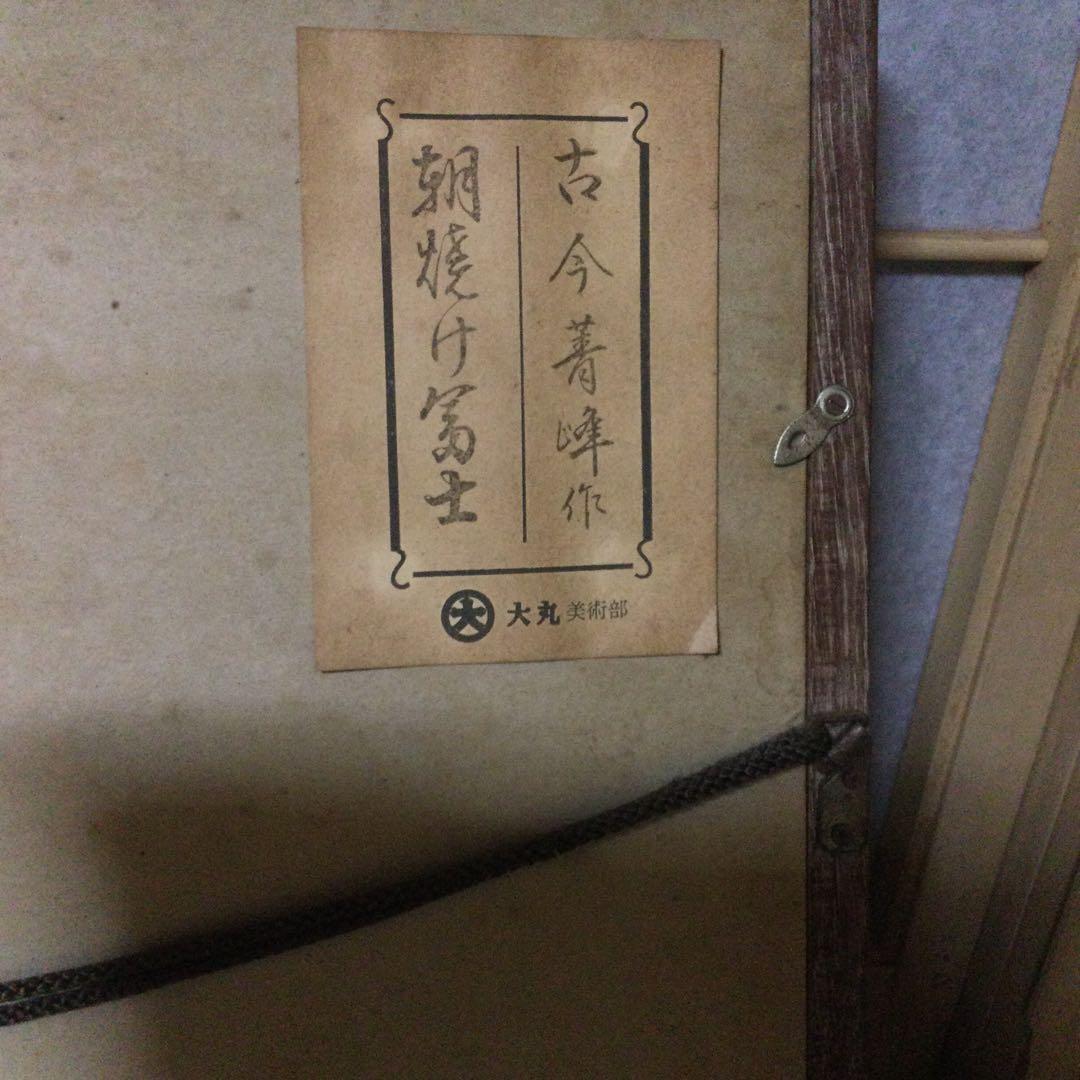 古今菁峰作
朝焼け富士
大 大丸 美術部